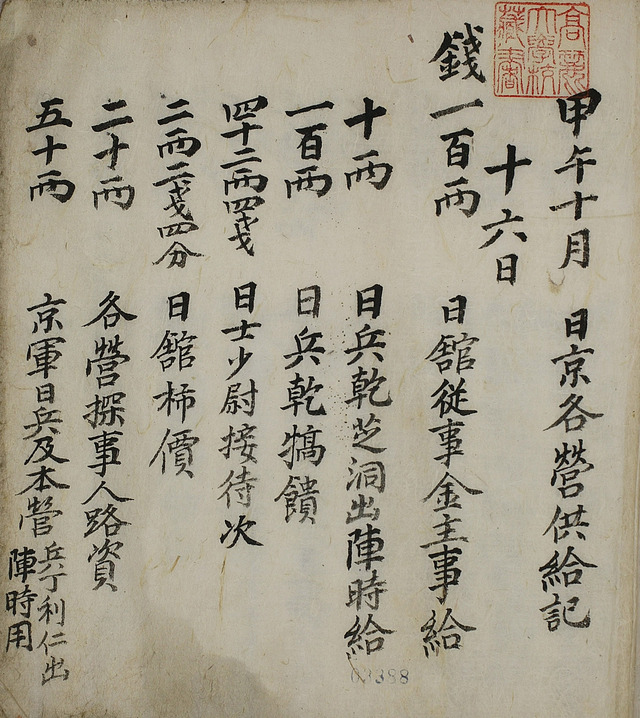 甲午十月 日京各營供給記
十六日
錢一百兩 日舘從事金主事給
十兩 日兵乾芝洞出陣時給
一百兩 日兵乾犒饋
四十二兩四戔 日士少尉接待次
二兩二戔四分 日舘柿價
二十兩 各營探事人路資
五十兩 京軍日兵及本營兵丁利仁出
陣時用
大學校
藏書